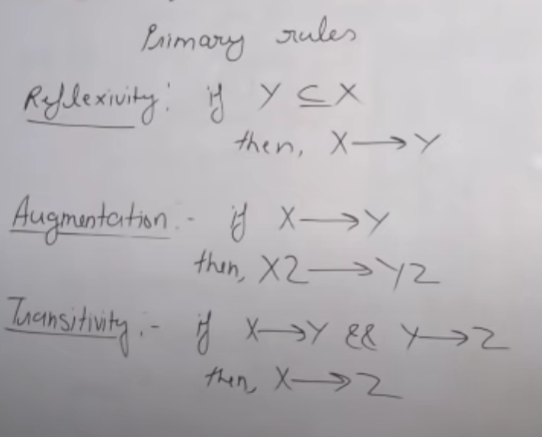 Primary rules
Reflexivity: if Y ⊆ X
then, X → Y
Augmentation :- if X → Y
then, XZ → YZ
Transitivity :- if X → Y && Y → Z
then, X → Z